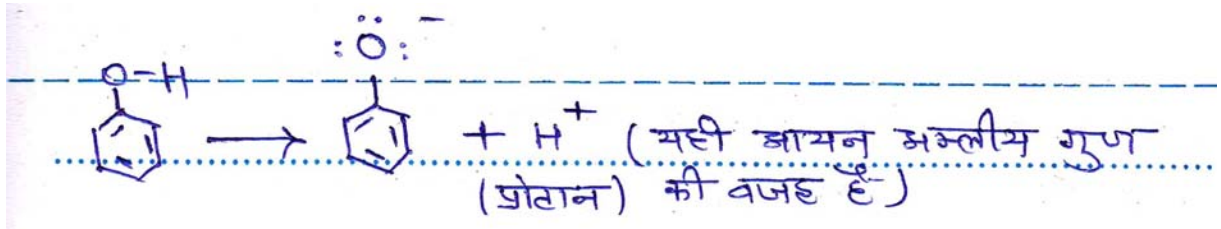 :Ö: −
O-H
⟶ + H⁺ (यही आयन अम्लीय गुण
(प्रोटान) की वजह है)